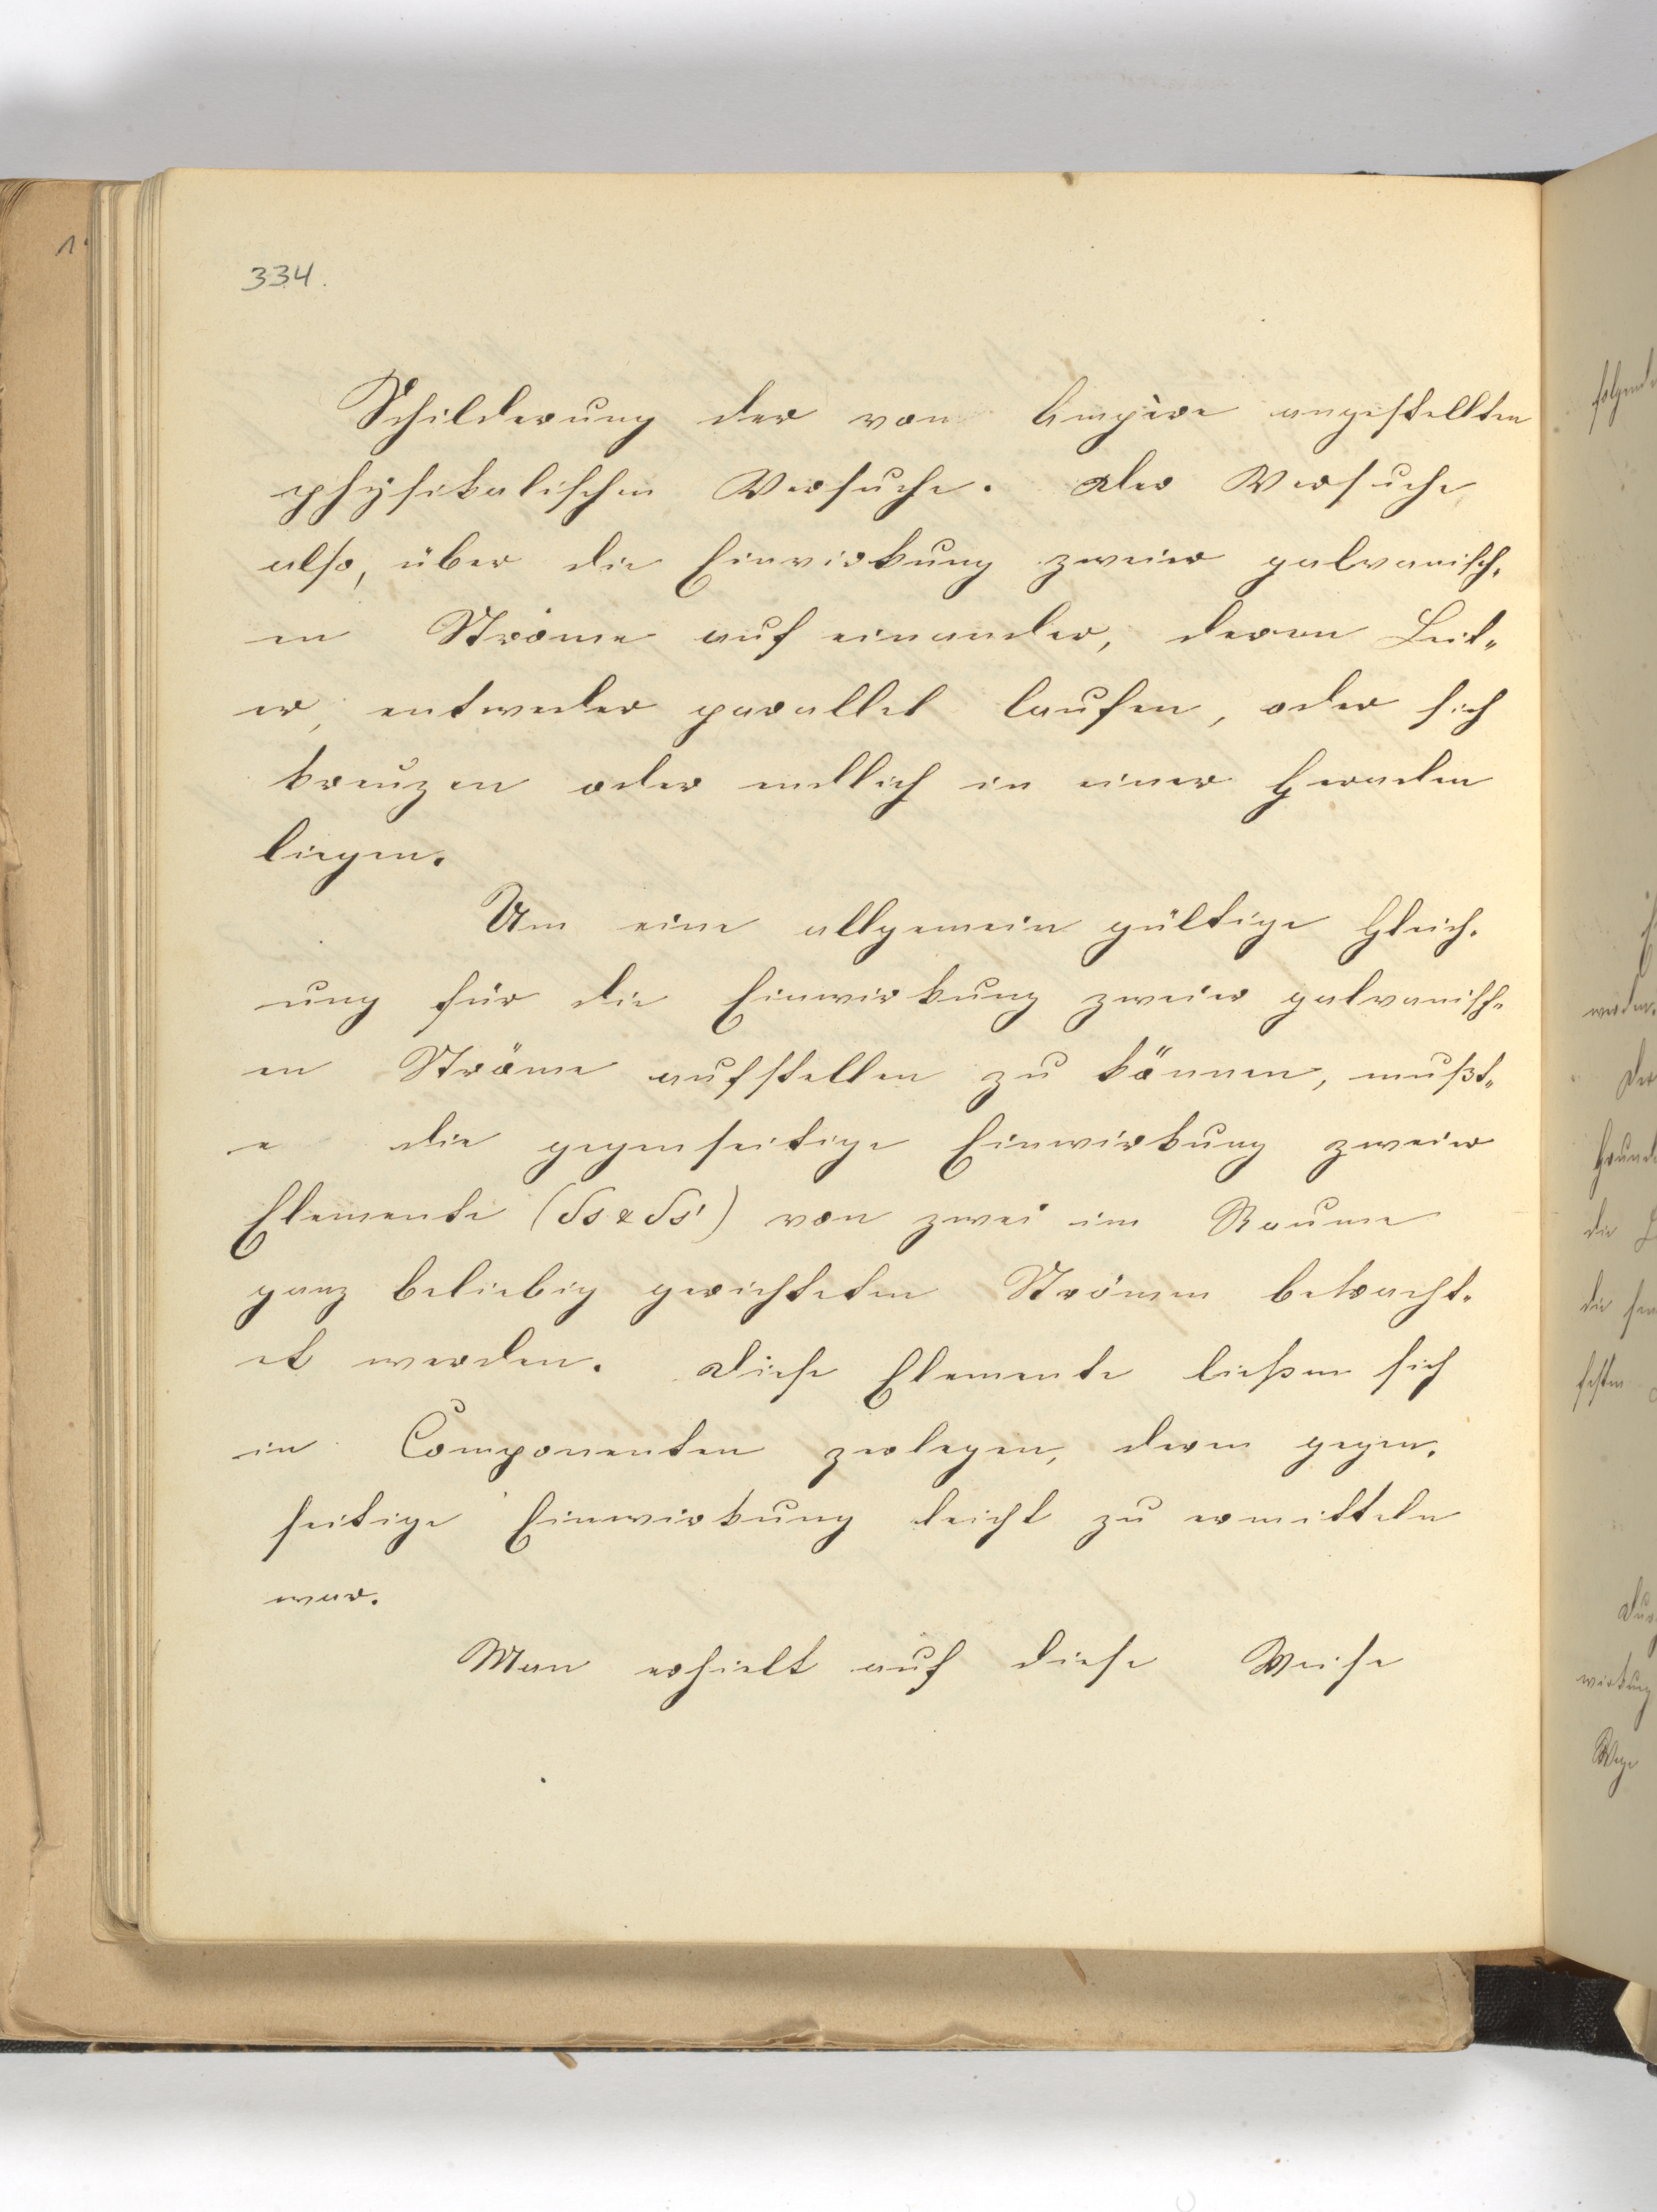 334.
Schilderung der von Ampère angestellten
physikalischen Versuche. Der Versuche
also, über die Einwirkung zweier galvanisch-
en Ströme auf einander, deren Leit-
er, entweder parallel laufen, oder sich
kreuzen oder endlich in einer Geraden
liegen.
Um eine allgemein gültige Gleich-
ung für die Einwirkung zweier galvanisch-
en Ströme aufstellen zu können, mußt-
e die gegenseitige Einwirkung zweier
Elemente (δs & δs') von zwei im Raume
ganz beliebig gerichteten Strömen betracht-
et werden. Diese Elemente ließen sich
in Componenten zerlegen, deren gegen-
seitige Einwirkung leicht zu ermitteln
war.
Man erhielt auf diese Weise